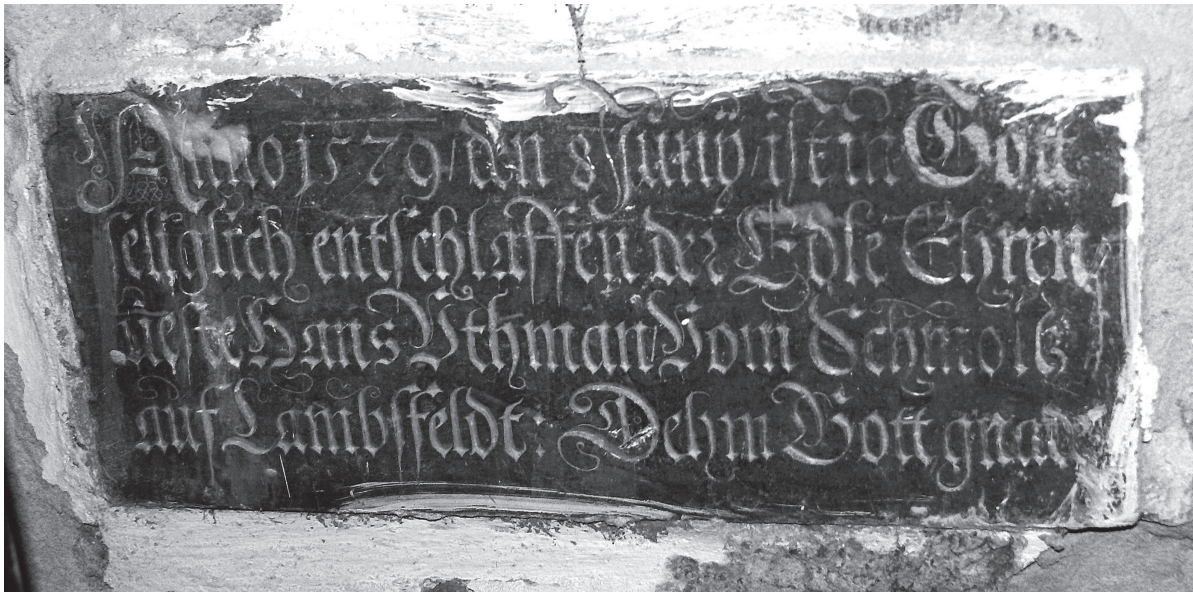 Anno 1579 den 8 Junÿ ist in Gott
seliglich entschlaffen der Edle Ehren
ueste Hans Uthman Vom Schmoltz
auf Lambsfeldt: Dehm Gott gnad